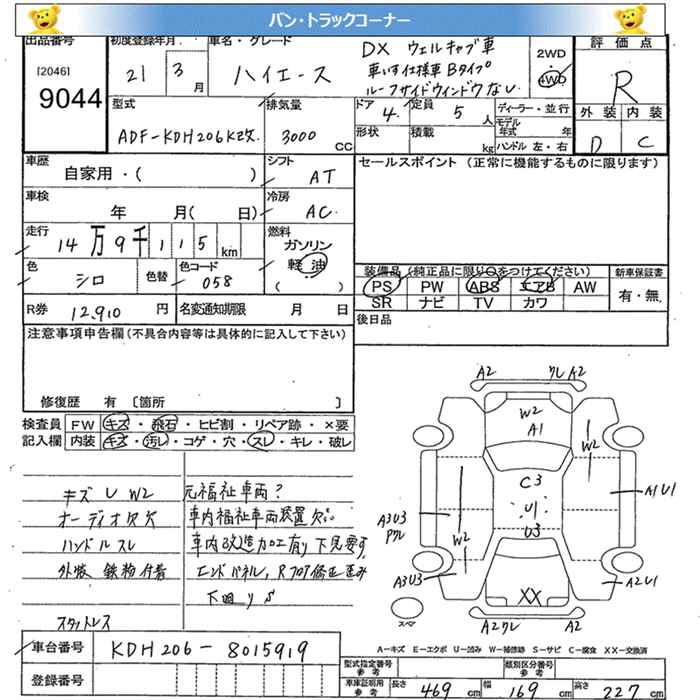 バン・トラックコーナー
出品番号 初度登録年月 車名・グレード DX ウェルキャブ車 2WD 評価点
[2046] 21 3月 ハイエース 車いす仕様車Bタイプ 4WD R
9044 ルーフサイドウィンドウなし 外装 内装
型式 排気量 ドア 4 定員 5人 ディーラー・並行 D C
ADF-KDH206K改 3000 CC 形状 積載 kg モデル年式 年 ハンドル 左・右
車歴 自家用・( ) シフト AT セールスポイント (正常に機能するものに限ります)
車検 年 月( 日) 冷房 AC
走行 14万9千115km 燃料 ガソリン 軽油 ( )
色 シロ 色替 色コード 058
装備品(純正品に限り○をつけてください) 新車保証書
PS PW ABS エアB AW 有・無
SR ナビ TV カワ
R券 12,910円 名変通知期限 月 日 後日品
注意事項申告欄(不具合内容等は具体的に記入して下さい)
修復歴 有 〔箇所 〕
検査員 FW キズ・飛石・ヒビ割・リペア跡・×要
記入欄 内装 キズ・汚レ・コゲ・穴・スレ・キレ・破レ
キズU W2 元福祉車両?
オーディオ欠 車内福祉車両装置欠
ハンドルスレ 車内改造加工有り 下見要す
外装 鉄粉付着 エンドパネル, Rフロア修正歪み
下廻りS
スタットレス
A2 クレ A2
W2
A1
W2
C3
U1
U3
A1U1
A3U3
Pクレ
W2
A3U3
A2U1
XX
スペア
A2クレ A2
A−キズ E−エクボ U−凹み W−補修跡 S−サビ C−腐食 XX−交換済
車台番号 KDH206-8015919
登録番号
型式指定番号 参考 類別区分番号 参考
車庫証明用 参考 長さ 469 cm 幅 169 cm 高さ 227 cm